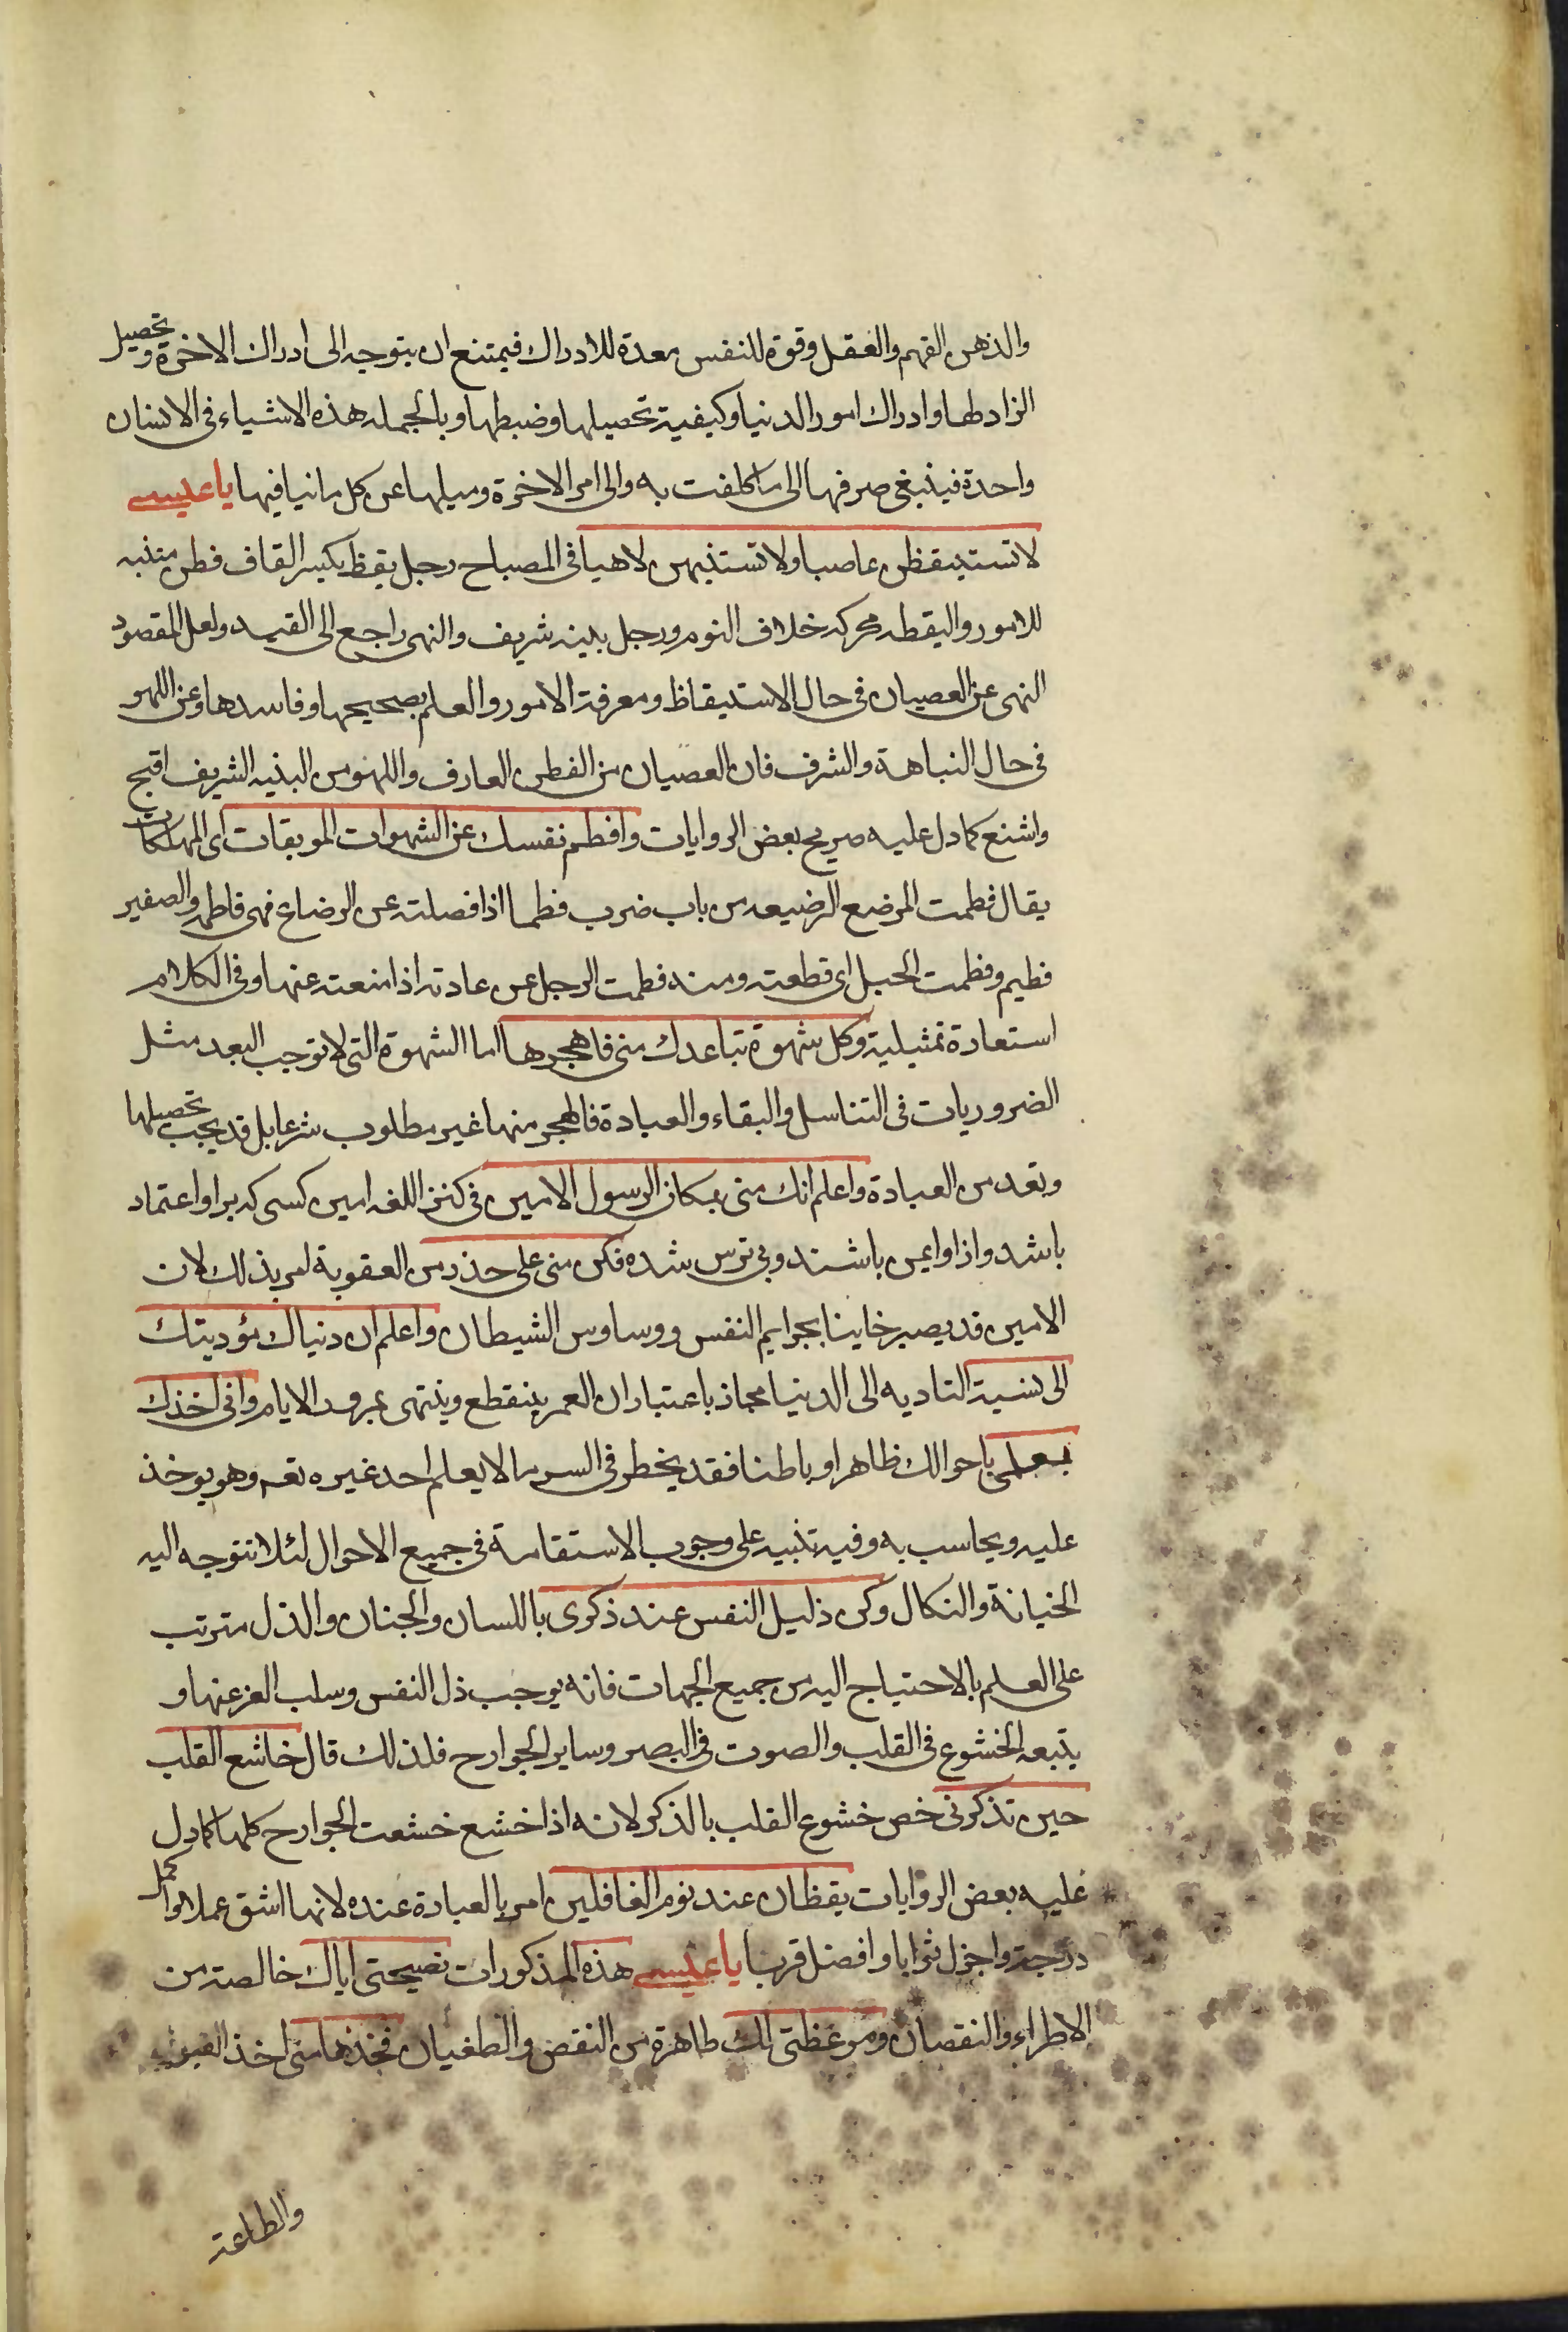 والذهن الفهم والعقل وقوة للنفس معدة للادراك فيمتنع ان يتوجه الى ادراك الاخرة وتحصيل
الزاد لها وادراك امور الدنيا وكيفية تحصيلها وضبطها وبالجمله هذه الاشياء فى الانسان
واحدة فينبغى صرفها الى ما كلفت به والى امر الاخرة وميلها عن كل ما ينافيها يا عيسى
لا تستيقظن عاصيا ولا تستنبهن لاهيا فى المصباح رجل يقظ بكسر القاف فطن متنبه
للامور واليقظه محركه خلاف النوم ورجل نبيه شريف والنهى راجع الى القيد ولعل المقصود
النهى عن العصيان فى حال الاستيقاظ ومعرفة الامور والعلم بصحيحها وفاسدها وعن اللهو
فى حال النباهة والشرف فان العصيان من الفطن العارف واللهو من النبيه الشريف اقبح
واشنع كما دل عليه صريح بعض الروايات وافطم نفسك عن الشهوات الموبقات اى المهلكات
يقال فطمت المرضع الرضيعه من باب ضرب فطما اذا فصلته عن الرضاع فهى فاطمه والصغير
فطيم وفطمت الحبل اى قطعته ومنه فطمت الرجل عن عادته اذا منعته عنها وفى الكلام
استعارة تمثيلية وكل شهوة تباعدك منى فاهجرها اما الشهوة التى لا توجب البعد مثل
الضروريات فى التناسل والبقاء والعبادة فالهجر منها غير مطلوب شرعا بل قد يجب تحصيلها
وتعد من العبادة واعلم انك منى بمكان الرسول الامين فى كنز اللغه امين كسى كه براو اعتماد
باشد واز او ايمن باشند وبى ترس شده فكن منى على حذر من العقوبة امر بذلك لان
الامين قد يصير خاينا بجرايم النفس ووساوس الشيطان واعلم ان دنياك مؤديتك
الى نسبة التاديه الى الدنيا مجاز باعتبار ان العمر ينقطع وينتهى بمرور الايام وانى اخذك
بعلمى باحوالك ظاهرا وباطنا فقد يخطر فى السر ما لا يعلم احد غيره تعم وهو يوخذ
عليه ويحاسب به وفيه تنبيه على وجوب الاستقامة فى جميع الاحوال لئلا تتوجه اليه
الخيانة والنكال وكن ذليل النفس عند ذكرى باللسان والجنان والذل مترتب
على العلم بالاحتياج اليه من جميع الجهات فانه يوجب ذل النفس وسلب العز عنها و
يتبعه الخشوع فى القلب والصوت فى البصر وساير الجوارح فلذلك قال خاشع القلب
حين تذكرنى خص خشوع القلب بالذكر لانه اذا خشع خشعت الجوارح كلها كما دل
عليه بعض الروايات يقظان عند نوم الغافلين امر بالعبادة عنده لانها اشق عملا واكمل
درجة واجزل ثوابا وافضل قربا يا عيسى هذه المذكورات نصيحتى اياك خالصة من
الاطراء والنقصان وموعظتى لك طاهرة من النقض والطغيان فخذها منى اخذ القبول
والطاعة